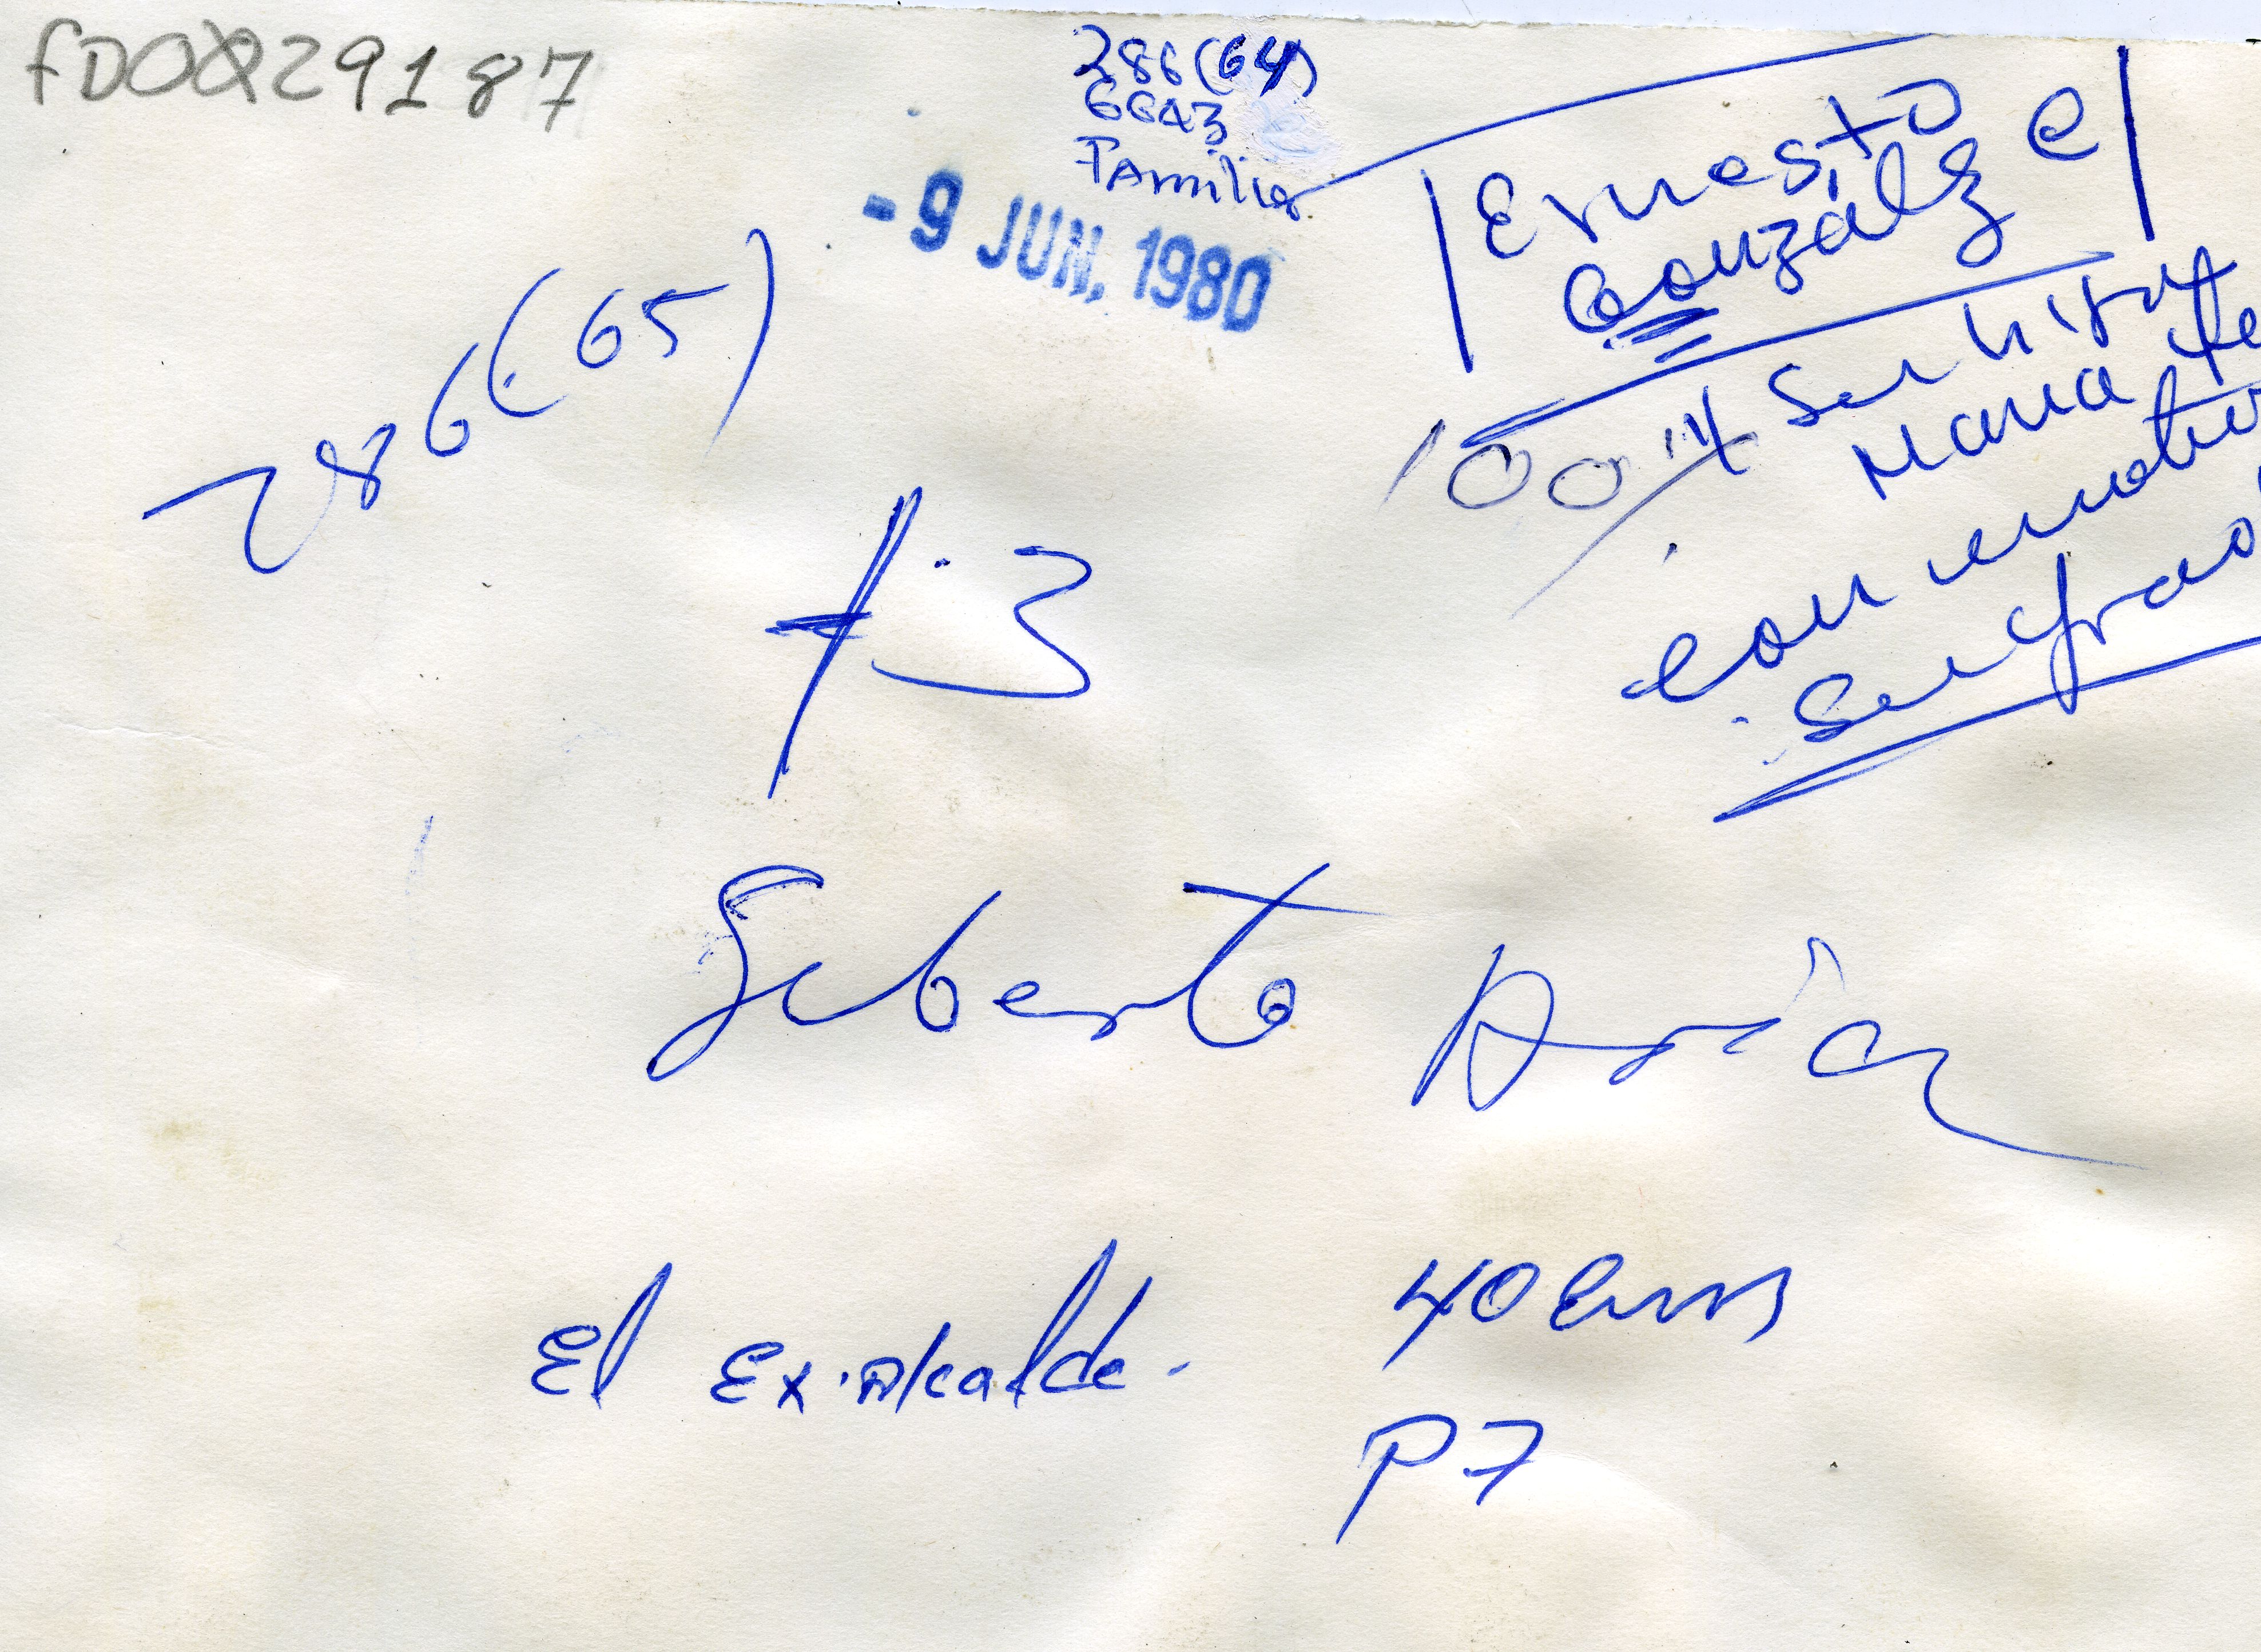 fD0029187
286(64)
6643
Familia
-9 JUN. 1980
Ernesto
González C
286(65)
100%
Su hija
Maria
con motivo
Su grado
f.3
Gilberto Aria
El Ex.Alcalde.
40 ems
P7